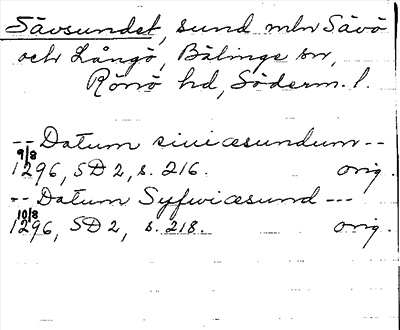 Sävsundet, sund mln Sävö
och Långö, Bälinge sn,
Rönö hd, Söderm. l.
-- Datum siuicæsundum --
9/8
1296, SD 2, s. 216. orig.
-- Datum Syfwicæsund ---
10/8
1296, SD 2, s. 218. orig.